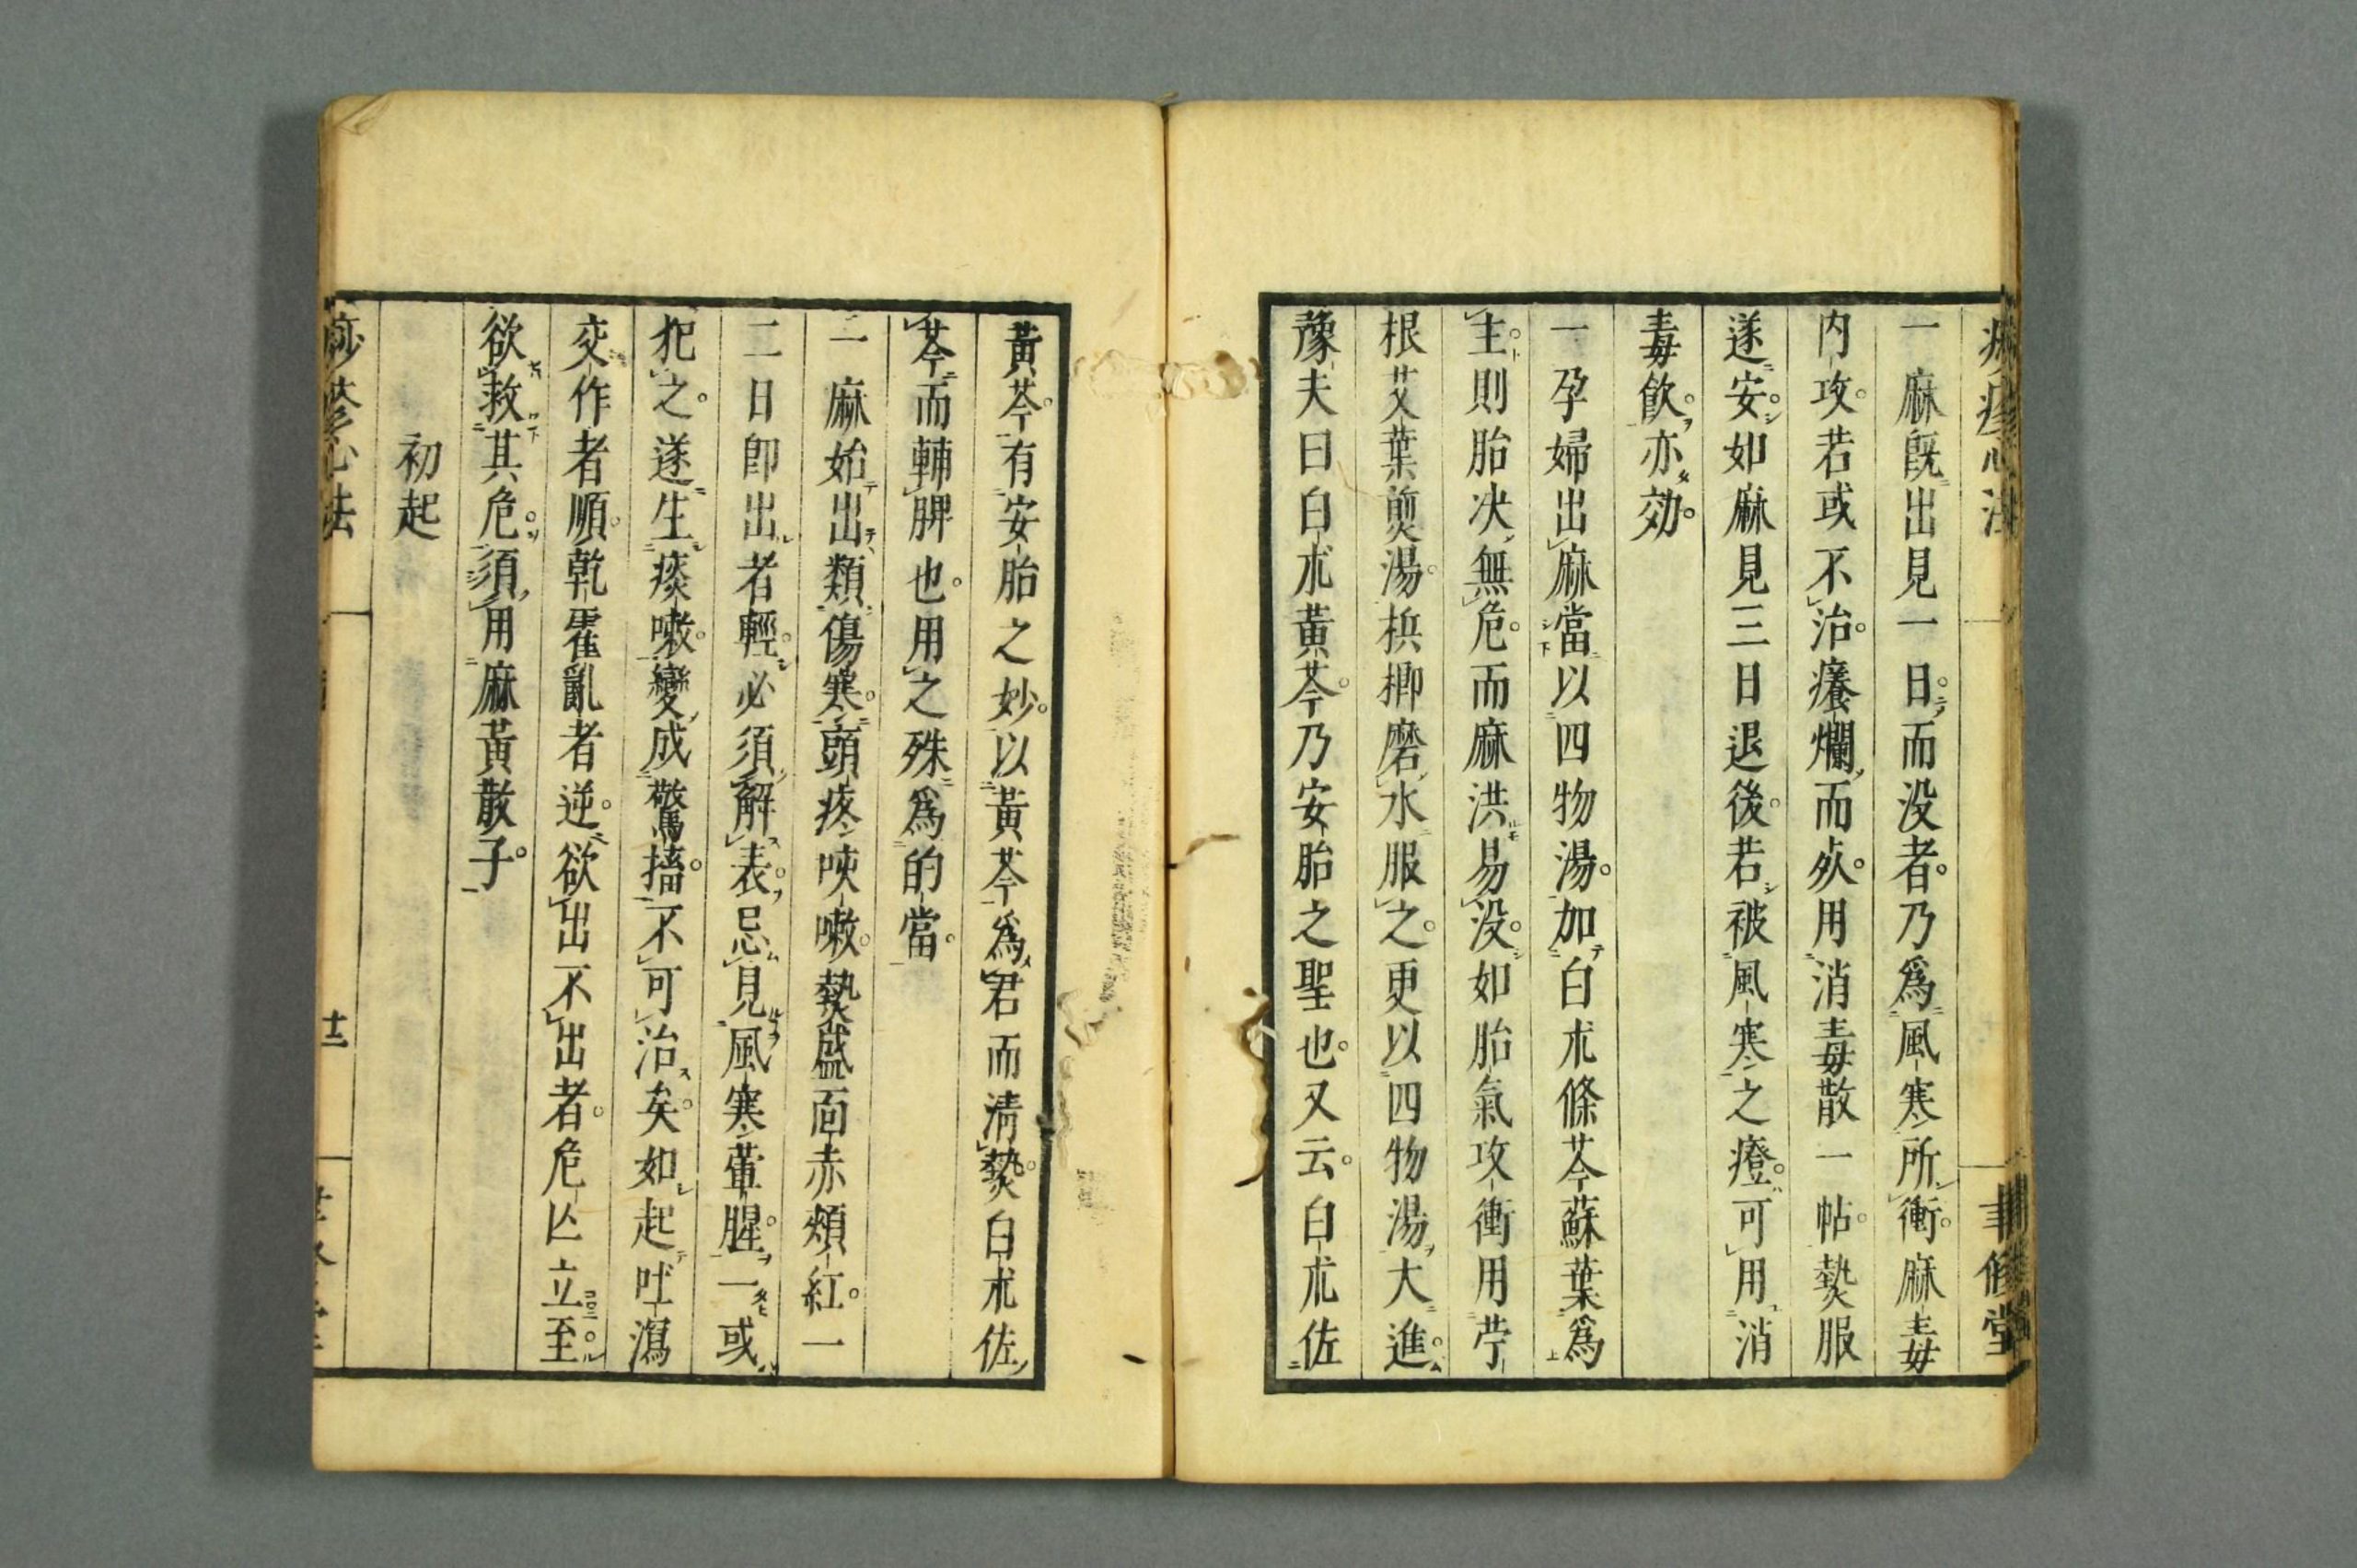 一麻旣出見一日而没者乃爲風寒所衝麻毒
内攻若或不治癢爛而死用消毒散一帖熱服
遂安如麻見三日退後若被風寒之證可用消
毒飲亦効
一孕婦出麻當以四物湯加白朮條芩蘇葉爲
主則胎决無危而麻洪易没如胎氣攻衝用苧
根艾葉煎湯梹榔磨水服之更以四物湯大進
豫夫曰白朮黃芩乃安胎之聖也又云白朮佐
黃芩有安胎之妙以黃芩爲君而清熱白朮佐
芩而輔脾也用之殊爲的當
一麻始出類傷寒頭疼咳嗽熱盛面赤頰紅一
二日卽出者輕必須解表忌見風寒葷腥一或
犯之遂生痰嗽變成驚搐不可治矣如起吐瀉
交作者順乾霍亂者逆欲出不出者危亡立至
欲救其危須用麻黃散子
初起
痧疹心法
十二